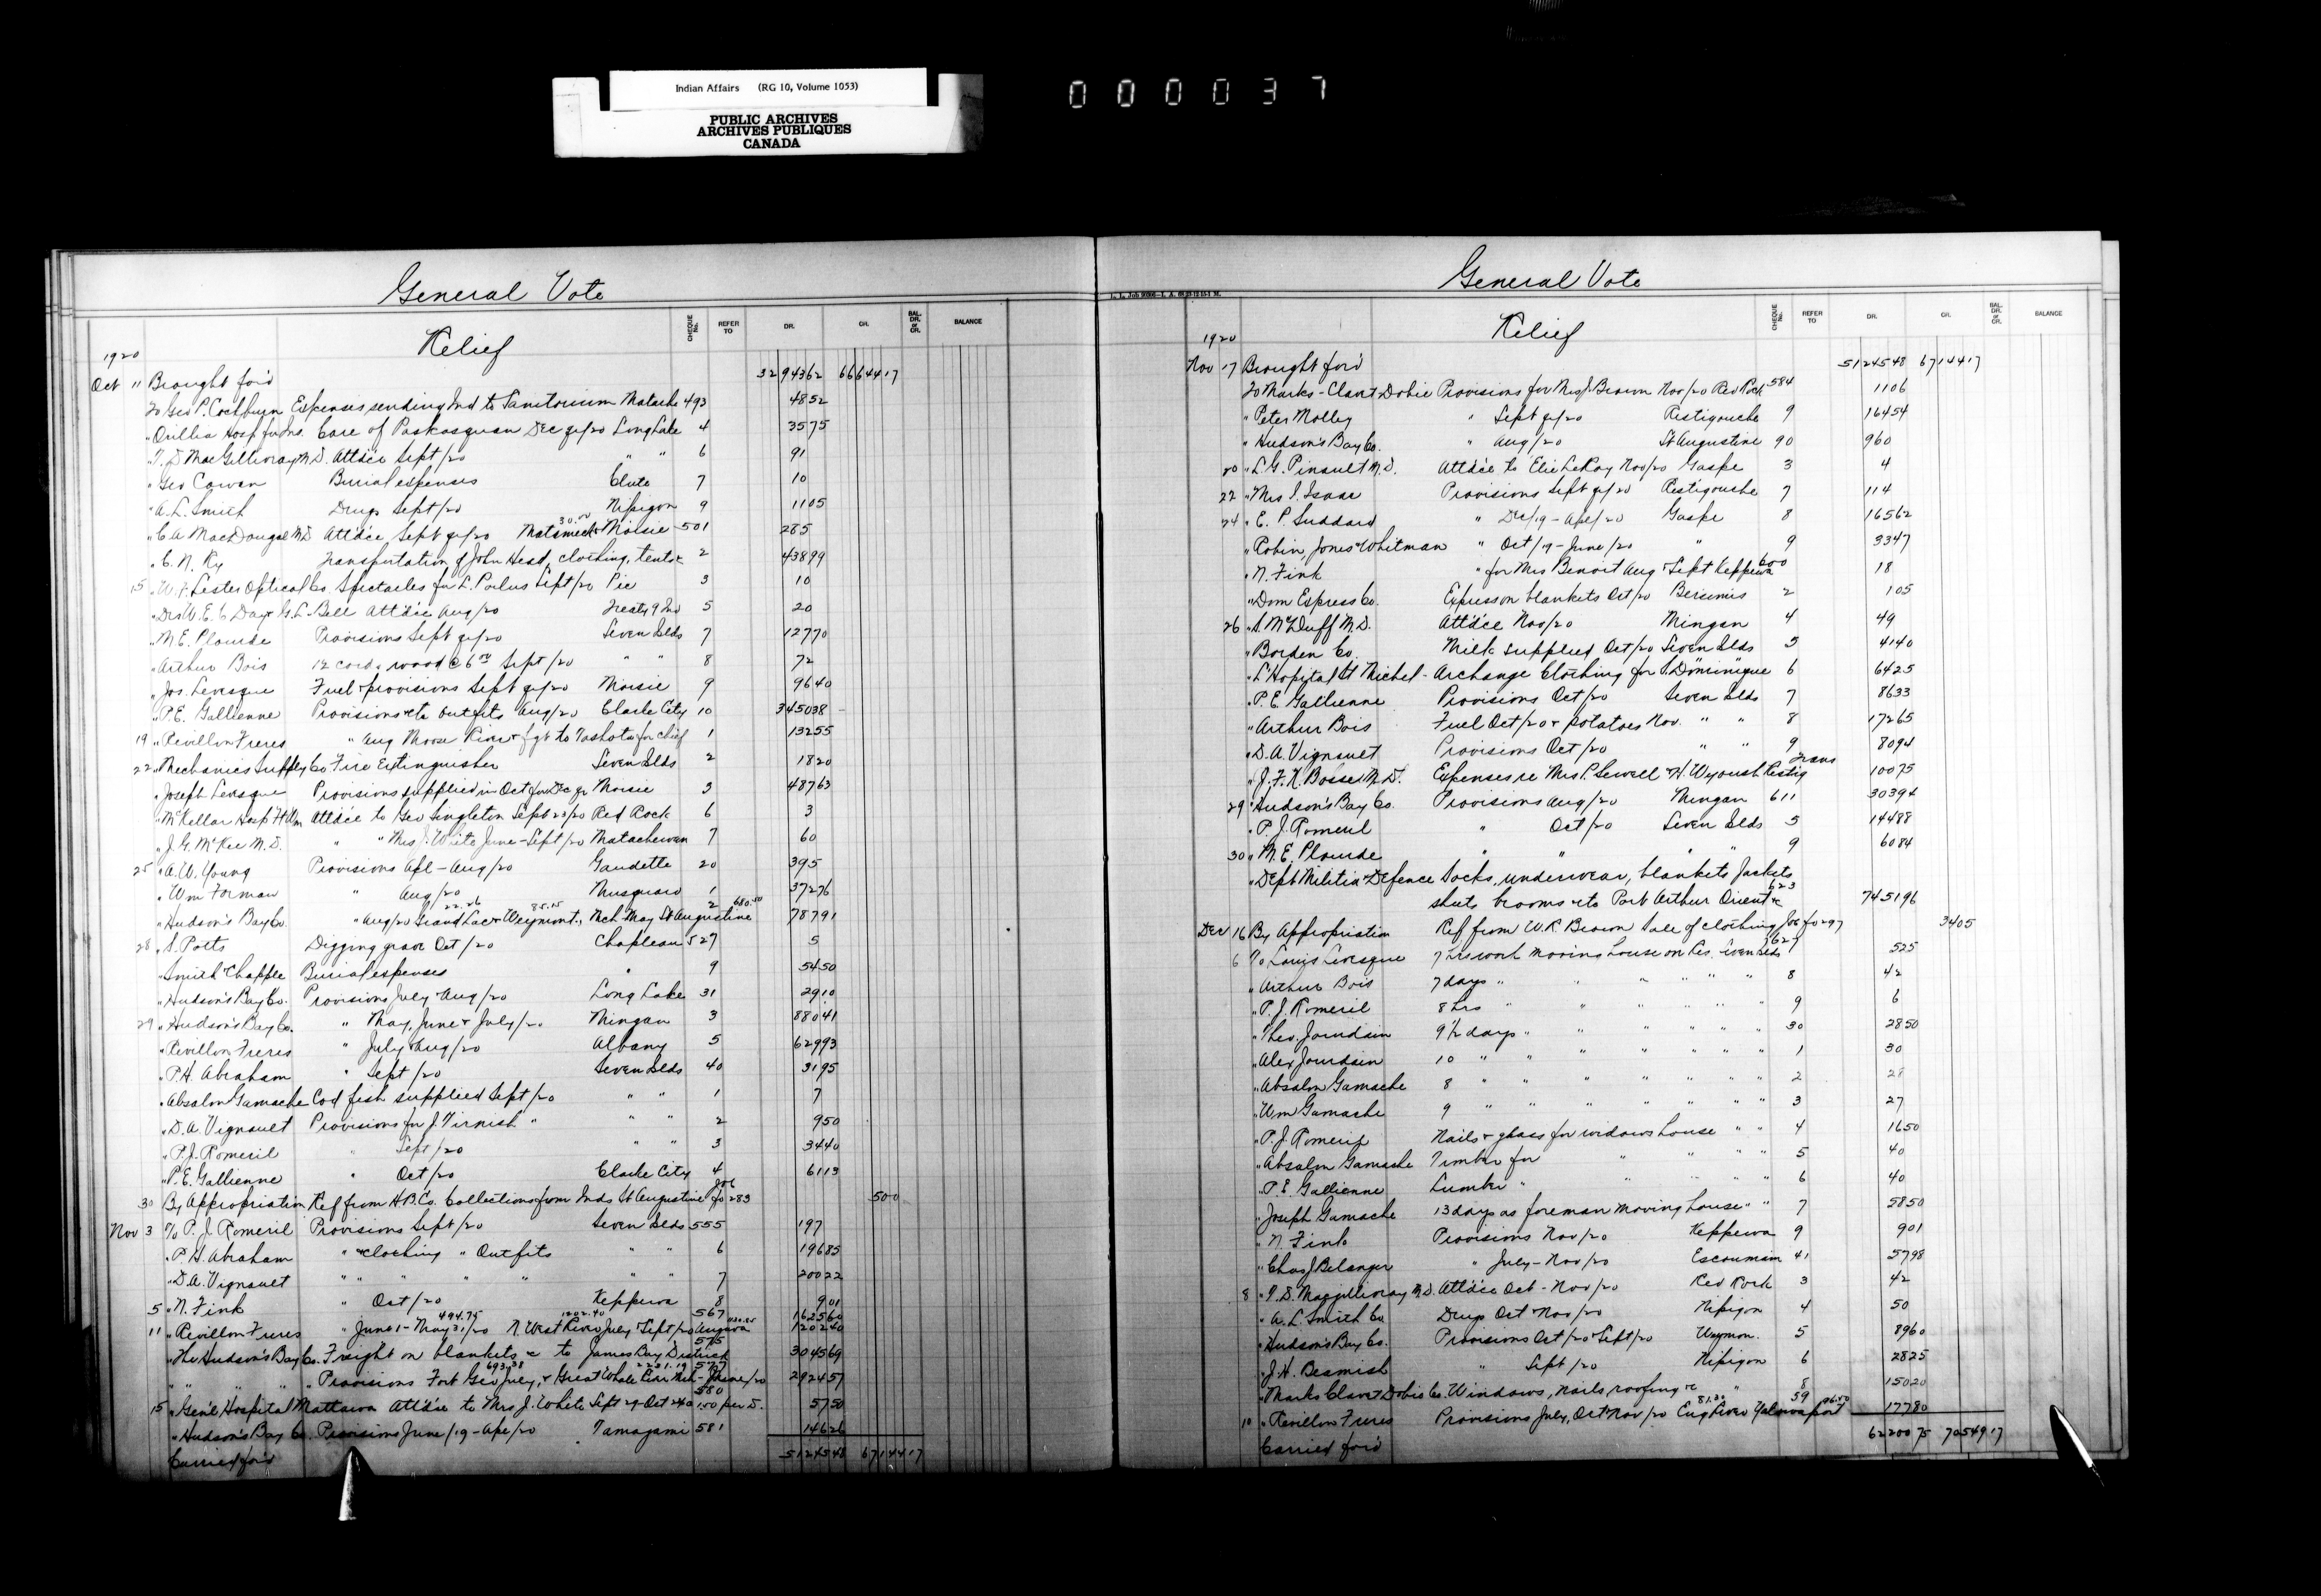 Indian Affairs (RG 10, Volume 1053)
PUBLIC ARCHIVES
ARCHIVES PUBLIQUES
CANADA
000037
General Vote
Relief
CHEQUE No. REFER TO DR. CR. BAL. DR. or CR. BALANCE
1920
Oct 11 Brought for'd 3294362 6664417
To Geo P. Cockburn Expenses sending Ind to Sanitorium Matache 493 4852
" Orillia Hosp Care of Paskasquan Dec qr/20 Long Lake 4 3575
" T. D MacGillivray M.D. Attd'ce Sept/20 " " 6 91
" Geo Cowan Burial expenses Clute 7 10
" A. L. Smith Drugs Sept/20 Nipigon 9 1105
" C. A MacDougal M.D Attd'ce Sept qr/20 Matameck 30.00 & Moisie 501 285
" C. N. Ry Transportation of John Head, clothing, tents &c 2 43899
15 " W. F. Lester Optical Co. Spectacles for L. Poilus Sept/20 Pic 3 10
" Drs W. E. C Day & G. L. Bell Attd'ce Aug/20 Treaty 9 Ind 5 20
" M. E. Plourde Provisions Sept qr/20 Seven Slds 7 12770
" Arthur Bois 12 cords wood @ 6.00 Sept/20 " " 8 72
" Jos. Levesque Fuel & provisions Sept qr/20 Moisie 9 9640
" P. E. Gallienne Provisions etc outfits Aug/20 Clarke City 10 345038
19 " Revillon Freres " Aug Moose River & fgt to Tashota for chief 1 13255
22 " Mechanics Supply Co Fire Extinguisher Seven Slds 2 1820
" Joseph Levesque Provisions supplied in Oct for Dec qr Moisie 3 48763
" McKellar Hosp Ft Wm Attd'ce to Geo Singleton Sept 23/20 Red Rock 6 3
" J. G. McKee M.D. " " Mrs J. White June-Sept/20 Matachewan 7 60
25 " A. W. Young Provisions Apl-Aug/20 Gaudette 20 395
" Wm Forman " Aug/20 Musquaro 1 37276
" Hudson's Bay Co. " Aug/20 Grand Lac 22.26 & Weymont. 85.15, Mch-May St Augustine 680.50 2 78791
28 " S. Potts Digging grave Oct/20 Chapleau 527 5
" Smith & Chapple Burial expenses " 9 5450
" Hudson's Bay Co. Provisions July & Aug/20 Long Lake 31 2910
29 " Hudson's Bay Co. " May, June & July/20 Mingan 3 88041
" Revillon Freres " July & Aug/20 Albany 5 62993
" P. H. Abraham " Sept/20 Seven Slds 40 3195
" Absalon Gamache Cod fish supplied Sept/20 " " 1 7
" D. A. Vignault Provisions for J. Tirnish " " " 2 950
" P. J. Romeril " Sept/20 " " 3 3440
" P. E. Gallienne " Oct/20 Clarke City 4 6113
30 By Appropriation Ref from H. B. Co. Collections from Inds St Augustine Jo fo 283 500
Nov 3 To P. J. Romeril Provisions Sept/20 Seven Slds 555 197
" P. H. Abraham " & clothing " Outfits " " 6 19685
" D. A. Vignault " " " " " " 7 20022
5 " N. Fink " Oct/20 Keppewa 8 901
11 " Revillon Freres " June 1-May 31/20 494.75 N. West River July & Sept/20 1202.40 Ungava 567 162560 120240
" The Hudson's Bay Co. Freight on blankets &c to James Bay District 575 304569
" " " " Provisions Fort Geo July 693.38, & Great Whale River Mch-June/20 2231.19 577 292457
15 " Gen'l Hospital Mattawa Attd'ce to Mrs J. White Sept 29-Oct 24 @ 1.50 per D. 580 5750
" Hudson's Bay Co. Provisions June/19-Apl/20 Tamagami 581 14626
Carried for'd 5124548 6714417
General Vote
L. L. Job
Relief
CHEQUE No. REFER TO DR. CR. BAL. DR. or CR. BALANCE
1920
Nov 17 Brought for'd 5124548 6714417
To Marks-Clavet Dobie Provisions for Mrs J. Brown Nov/20 Red Rock 584 1106
" Peter Molley " Sept qr/20 Restigouche 9 16454
" Hudson's Bay Co. " Aug/20 St Augustine 90 960
20 " L. G. Pinault M.D. Attd'ce to Elie LeRoy Nov/20 Gaspe 3 4
22 " Mrs I. Isaac Provisions Sept qr/20 Restigouche 7 114
24 " E. P. Suddard " Dec/19-Apl/20 Gaspe 8 16562
" Robin, Jones & Whitman " Oct/19-June/20 " 9 3347
" N. Fink " for Mrs Benoit Aug & Sept Keppewa 600 18
" Dom Express Co. Express on blankets Oct/20 Bersimis 2 105
26 " S. McDuff M.D. Attd'ce Nov/20 Mingan 4 49
" Borden Co. Milk supplied Oct/20 Seven Slds 5 4140
" L'Hopital St Michel-Archange Clothing for S. Dominique 6 6425
" P. E. Gallienne Provisions Oct/20 Seven Slds 7 8633
" Arthur Bois Fuel Oct/20 & potatoes Nov. " " 8 17265
" D. A. Vignault Provisions Oct/20 " " 9 8094
" J. F. K. Bosse M.D. Expenses re Mrs P. Sewell & H. Wysoush Restig trans 10075
29 " Hudson's Bay Co. Provisions Aug/20 Mingan 611 30394
" P. J. Romeril " Oct/20 Seven Slds 5 14488
30 " M. E. Plourde " " " " 9 6084
" Dept Militia & Defence Socks, underwear, blankets Jackets
shirts brooms etc to Port Arthur Orient &c 623 745196
Dec 16 By Appropriation Ref from W. R. Brown Sale of clothing Jo fo 297 3405
6 To Louis Levesque 7 hrs work moving house on Res. Seven Slds 627 525
" Arthur Bois 7 days " " " " " " 8 42
" P. J. Romeril 8 hrs " " " " " 9 6
" Theo. Jourdain 9 1/2 days " " " " " " 30 2850
" Alex Jourdain 10 " " " " " " " 1 30
" Absalon Gamache 8 " " " " " " " 2 28
" Wm Gamache 9 " " " " " " " 3 27
" P. J. Romeril Nails & glass for widows house " " 4 1650
" Absalon Gamache Timber for " " " " 5 40
" P. E. Gallienne Lumber " " " " " 6 40
" Joseph Gamache 13 days as foreman moving house " " 7 5850
" N. Fink Provisions Nov/20 Keppewa 9 901
" Chas J Belanger " July-Nov/20 Escoumain 41 5798
8 " T. D. Macgillivray M.D. Attd'ce Oct-Nov/20 Red Rock 3 42
" A. L. Smith Co Drugs Oct & Nov/20 Nipigon 4 50
" Hudson's Bay Co. Provisions Oct/20 & Sept/20 Weymon. 5 8960
" J. H. Beamish " Sept/20 Nipigon 6 2825
" Marks Clavet Dobie Co. Windows, nails, roofing &c " 8 15020
10 " Revillon Freres Provisions July, Oct & Nov/20 Eng River 81.30 96.50 59 17780
Carried for'd 6220075 7054917